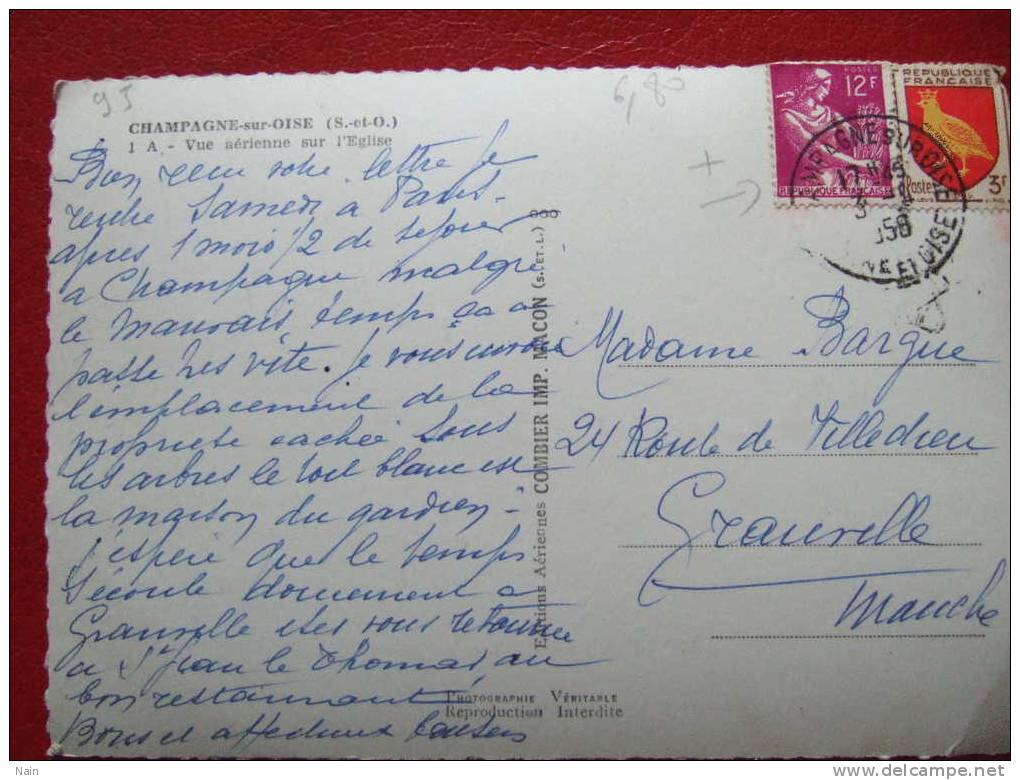 95
6,80
CHAMPAGNE-sur-OISE (S.-et-O.)
1 A - Vue aérienne sur l'Eglise
POSTES
12F
REPUBLIQUE FRANÇAISE
REPUBLIQUE
FRANÇAISE
Postes
3F
5
1958
Bien reçu votre lettre je
rentre Samedi a Paris
après 1 mois 1/2 de sejour
a Champagne malgré
le mauvais temps ça a
passé tres vite. Je vous envoie
l'emplacement de la
propriete cachée sous
les arbres le toit blanc est
la maison du gardien -
j'espere que le temps
s'écoule doucement a
Granville etes vous retournée
a St Jean le Thomas au
bon restaurant
Bons et affectueux baisers
Editions Aériennes COMBIER IMP. MACON (S.-ET-L.)
Madame Bargue
24 Route de Villedieu
Granville
Manche
PHOTOGRAPHIE VÉRITABLE
Reproduction Interdite
Nain
delcampe.net